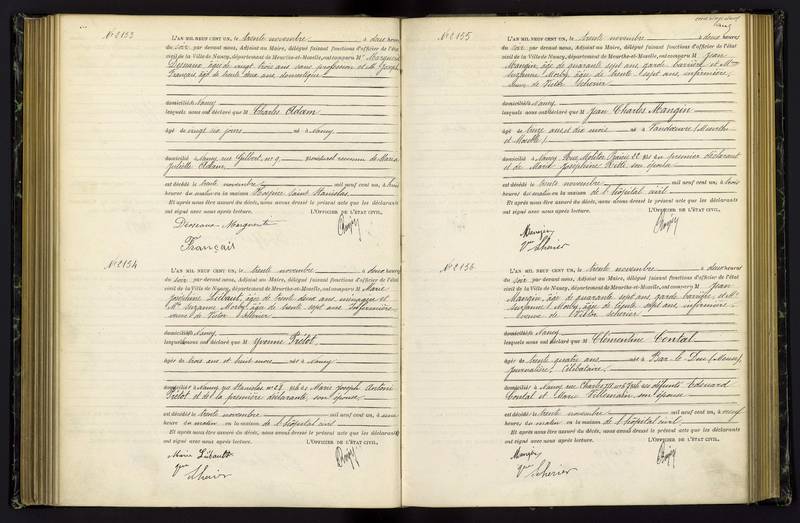 N° 2153
L'AN MIL NEUF CENT UN, le trente novembre à deux heures
du soir par devant nous, Adjoint au Maire, délégué faisant fonctions d'officier de l'état
civil de la Ville de Nancy, département de Meurthe-et-Moselle, ont comparu M Marguerite
âgée de vingt trois ans sans profession et M Joseph
Français, âgé de trente deux ans, domestique
domiciliés Nancy
lesquels nous ont déclaré que M Charles Adam
âgé de vingt six jours né à Nancy
domicilié à Nancy, rue Gilbert, n° 9, reconnu de Maria
Juliette Adam
est décédé le trente novembre mil neuf cent un, à huit
heures du matin en la maison de l'Hospice Saint Stanislas
Et après nous être assuré du décès, nous avons dressé le présent acte que les déclarants
ont signé avec nous après lecture. L'OFFICIER DE L'ÉTAT CIVIL,
Marguerite
Français
N° 2154
L'AN MIL NEUF CENT UN, le trente novembre à deux heures
du soir par devant nous, Adjoint au Maire, délégué faisant fonctions d'officier de l'état
civil de la Ville de Nancy, département de Meurthe-et-Moselle, ont comparu M Marie
Joséphine âgée de trente deux ans, ménagère et
Me Suzanne Morby âgée de trente sept ans, Infirmière
veuve de Victor Scherier
domiciliés Nancy
lesquels nous ont déclaré que M Yvonne Prétot
âgée de trois ans et huit mois née à Nancy
domiciliée à Nancy, rue Stanislas n° 28 fille de Marie Joseph Antoine
Prétot et de la première déclarante, son épouse
est décédé le trente novembre mil neuf cent un, à une
heure du matin en la maison de l'hôpital civil
Et après nous être assuré du décès, nous avons dressé le présent acte que les déclarants
ont signé avec nous après lecture. L'OFFICIER DE L'ÉTAT CIVIL,
Marie
Vve
Scherier
N° 2155
L'AN MIL NEUF CENT UN, le trente novembre à deux heures
du soir par devant nous, Adjoint au Maire, délégué faisant fonctions d'officier de l'état
civil de la Ville de Nancy, département de Meurthe-et-Moselle, ont comparu M Jean
Mangin, âgé de quarante sept ans garde barrière et Mme
Suzanne Morby, âgée de trente sept ans, infirmière,
veuve de Victor Scherier
domiciliés Nancy
lesquels nous ont déclaré que M Jean Charles Mangin
âgé de ans et dix mois né à Vandœuvre (Meurthe
et Moselle)
domicilié à Nancy, Rue Molitor Prairie 22 fils du premier déclarant
et de Marie Joséphine son épouse
est décédé le trente novembre mil neuf cent un, à trois
heures du matin en la maison de l'hôpital civil
Et après nous être assuré du décès, nous avons dressé le présent acte que les déclarants
ont signé avec nous après lecture. L'OFFICIER DE L'ÉTAT CIVIL,
Mangin
Vve Scherier
N° 2156
L'AN MIL NEUF CENT UN, le trente novembre à deux heures
du soir par devant nous, Adjoint au Maire, délégué faisant fonctions d'officier de l'état
civil de la Ville de Nancy, département de Meurthe-et-Moselle, ont comparu M Jean
Mangin, âgé de quarante sept ans garde barrière, et Me
Suzanne Morby âgée de trente sept ans, infirmière,
veuve de Victor Scherier
domiciliés Nancy
lesquels nous ont déclaré que M Clémentine Contal
âgée de trente quatre ans née à Bar le Duc (Meuse)
journalière, Célibataire
domiciliée à Nancy rue Charles III n° 67 fille des défunts Edouard
Contal et Marie Villemain son épouse
est décédé le trente novembre mil neuf cent un, à neuf
heures du matin en la maison de l'hôpital civil
Et après nous être assuré du décès, nous avons dressé le présent acte que les déclarants
ont signé avec nous après lecture. L'OFFICIER DE L'ÉTAT CIVIL,
Mangin
Vve Scherier